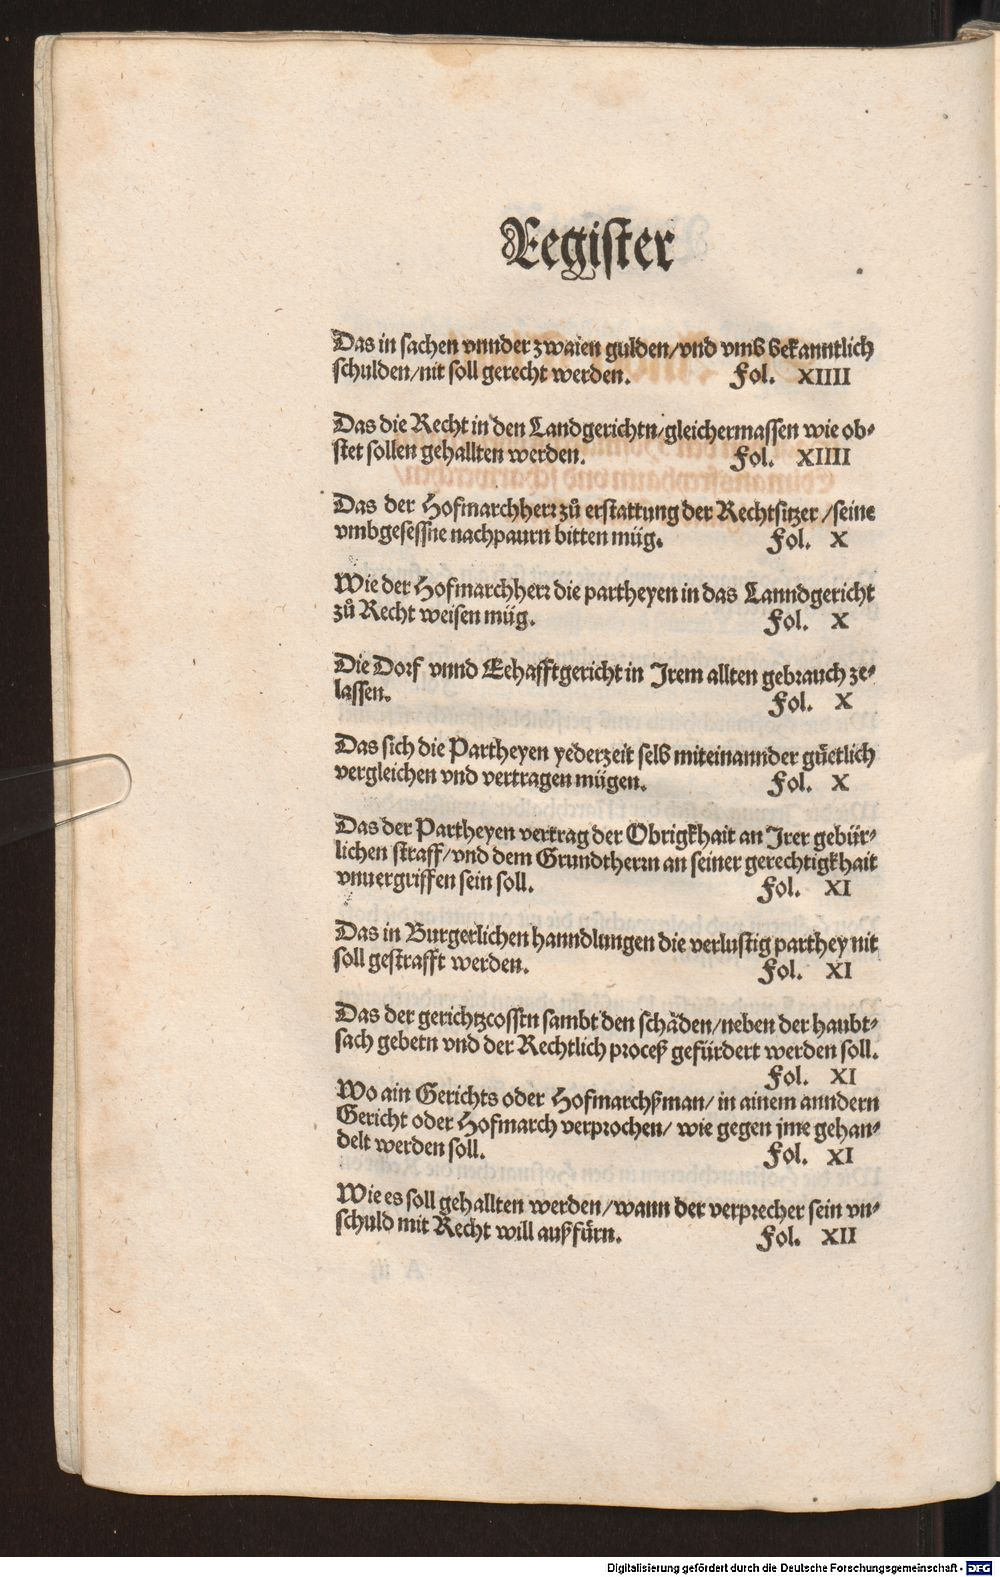 Register
Das in sachen vnnder zwaien gulden/vnd vmb bekanntlich
schulden/nit soll gerecht werden. Fol. XIIII
Das die Recht in den Landgerichtn/gleichermassen wie ob⸗
stet sollen gehallten werden. Fol. XIIII
Das der Hofmarchherr zů erstattung der Rechtsitzer /seine
vmbgesessne nachpaurn bitten müg. Fol. X
Wie der Hofmarchherr die partheyen in das Lanndgericht
zů Recht weisen müg. Fol. X
Die Dorf vnnd Eehafftgericht in Jrem allten gebrauch ze⸗
lassen. Fol. X
Das sich die Partheyen yederzeit selb miteinannder gůetlich
vergleichen vnd vertragen mügen. Fol. X
Das der Partheyen vertrag der Obrigkhait an Jrer gebür⸗
lichen straff/vnd dem Grundtherrn an seiner gerechtigkhait
vnuergriffen sein soll. Fol. XI
Das in Burgerlichen hanndlungen die verlustig parthey nit
soll gestrafft werden. Fol. XI
Das der gerichtzcosstn sambt den schäden/neben der haubt⸗
sach gebetn vnd der Rechtlich proceß gefürdert werden soll.
Fol. XI
Wo ain Gerichts oder Hofmarchßman/ in ainem anndern
Gericht oder Hofmarch verprochen/ wie gegen jme gehan⸗
delt werden soll. Fol. XI
Wie es soll gehallten werden/wann der verprecher sein vn⸗
schuld mit Recht will außfürn. Fol. XII
Digitalisierung gefördert durch die Deutsche Forschungsgemeinschaft - DFG